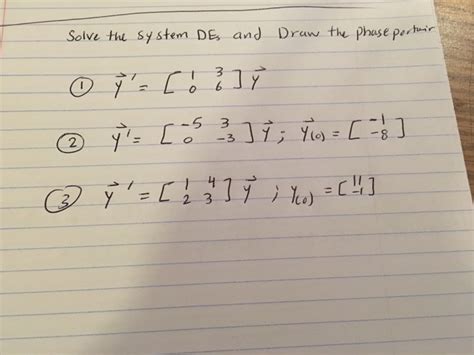 Solve the system DEs and Draw the phase portrair
① y⃗' = [1 3 0 6] y⃗
② y⃗' = [-5 3 0 -3] y⃗ ; y⃗(0) = [-1 -8]
③ y⃗' = [1 4 2 3] y⃗ ; y(0) = [11 -1]